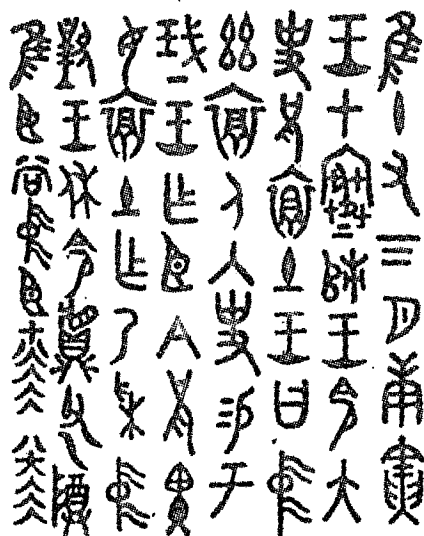 隹十又三月庚寅
王才寒𠂤王令大
史兄褔土王曰中
茲褔人入史易于
珷王乍臣今兄畀
女褔土乍乃采中
對王休令𩰬父乙尊
隹臣尚中臣七八六六六六八七六六六六